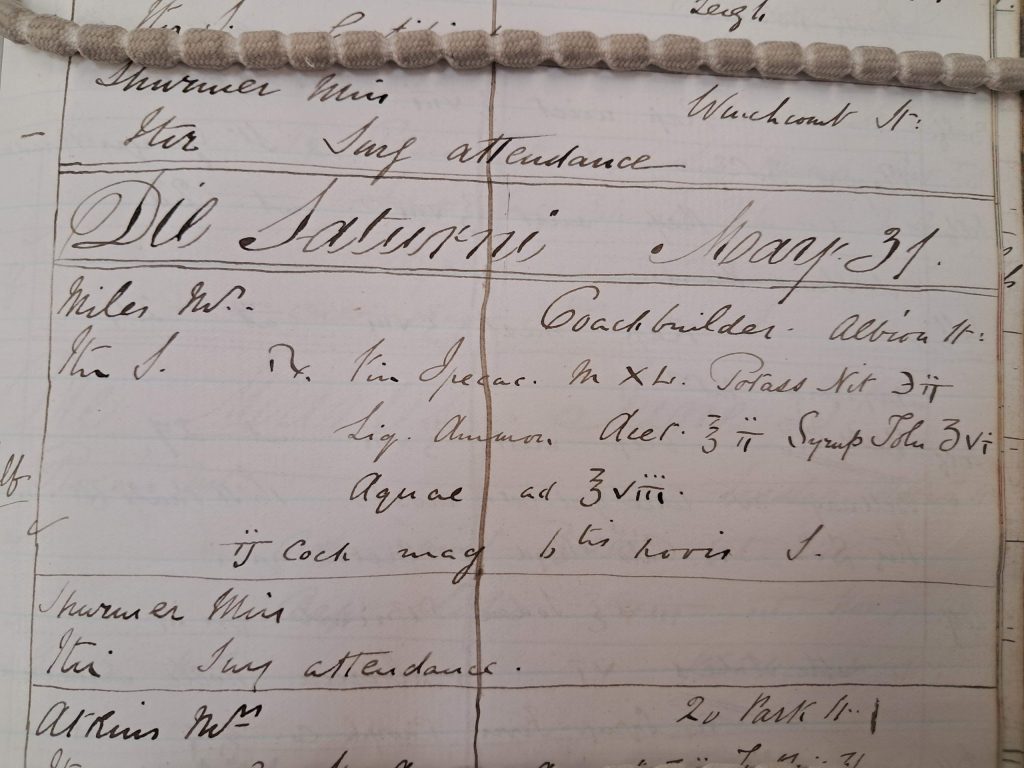 Leigh
Shurmer Miss Winchcomb St:
Iter Surg attendance
Die Saturni May. 31.
Miles Mr. Coachbuilder. Albion St:
Iter S. ℞. Vin Ipecac. ♏ XL. Potass Nit ʒij
Liq. Ammon Acet. ℥ij Syrup Tolu ʒvi
Aquae ad ℥viii.
ij Coch mag 6tis horis S.
Shurmer Miss
Iter Surg attendance.
Atkins Mrs 20 Park St.